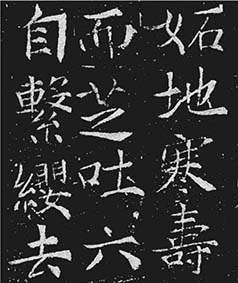 妬地寒壽
而芝吐六
自繫纓去